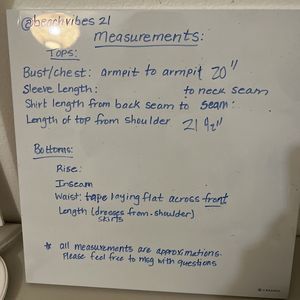 @beachvibes 21
Measurements:
Tops:
Bust/chest: armpit to armpit 20"
Sleeve Length: to neck seam
Shirt length from back seam to seam:
Length of top from shoulder 21 1/2"
Bottoms:
Rise:
Inseam
Waist: tape laying flat across front
Length (dresses from shoulder)
skirts
* all measurements are approximations.
Please feel free to msg with questions